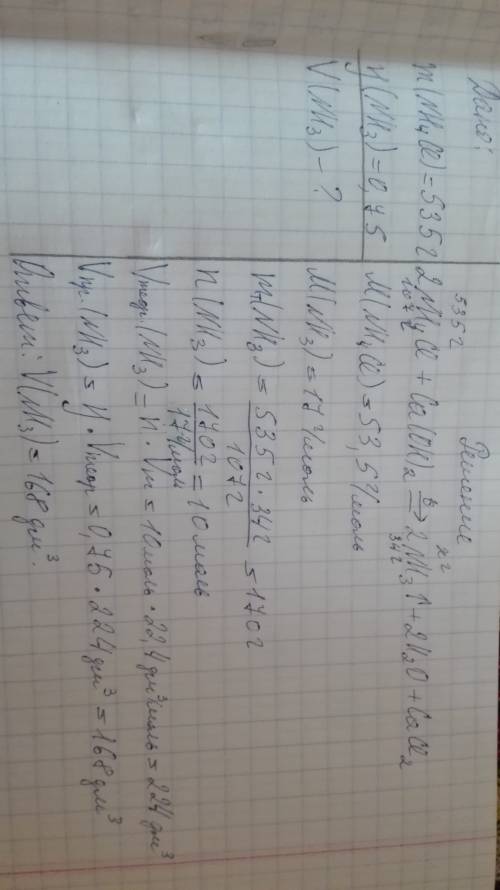 Дано:
m(NH₄Cl) = 535 г
η(NH₃) = 0,75
V(NH₃) – ?
Решение
535 г x г
2NH₄Cl + Ca(OH)₂ ⇒ᵗ 2NH₃↑ + 2H₂O + CaCl₂
107 г 34 г
M(NH₄Cl) = 53,5 г/моль
M(NH₃) = 17 г/моль
m(NH₃) = 535 г · 34 г / 107 г = 170 г
n(NH₃) = 170 г / 17 г/моль = 10 моль
Vтеор.(NH₃) = n · Vm = 10 моль · 22,4 дм³/моль = 224 дм³
Vпр.(NH₃) = η · Vтеор = 0,75 · 224 дм³ = 168 дм³
Ответ: V(NH₃) = 168 дм³.